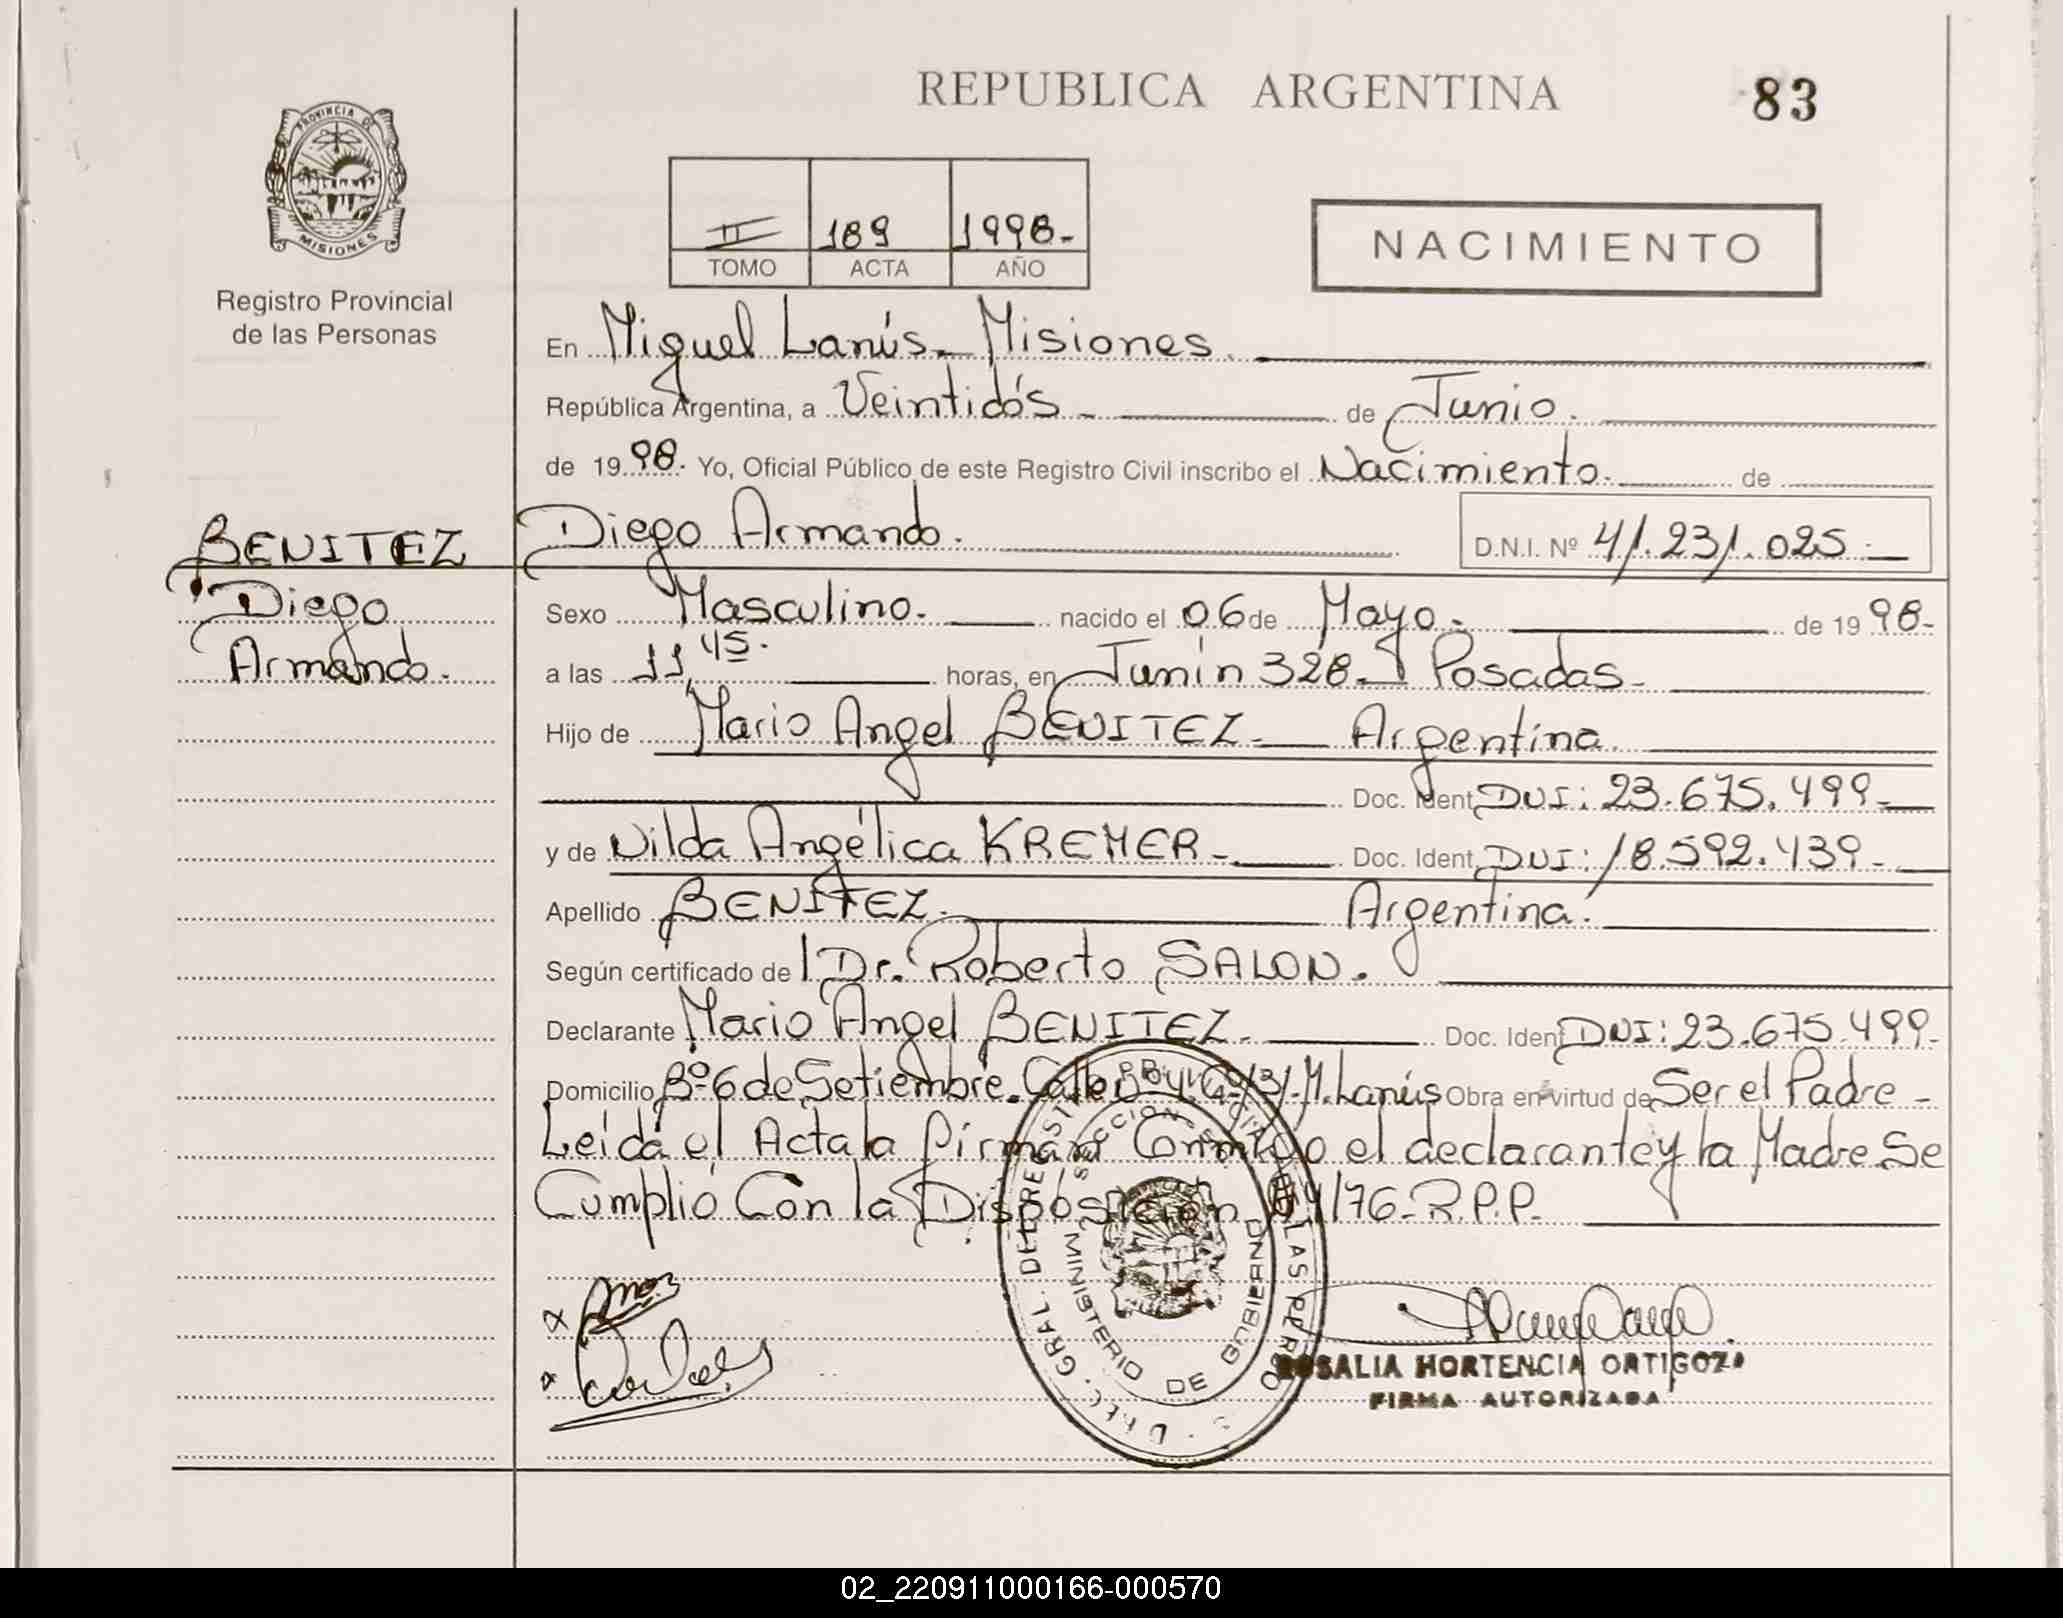 REPUBLICA ARGENTINA
83
PROVINCIA DE
MISIONES
Registro Provincial
de las Personas
II 189 1998-
TOMO ACTA AÑO
NACIMIENTO
En Miguel Lanús - Misiones.
República Argentina, a Veintidós - de Junio.
de 1998. Yo, Oficial Público de este Registro Civil inscribo el Nacimiento. de
Diego Armando. D.N.I. Nº 41.231.025.
BENITEZ
Diego
Armando.
Sexo Masculino. nacido el 06 de Mayo. de 1998-
a las 11,45. horas, en Junín 328. Posadas-
Hijo de Mario Angel BENITEZ. Argentina
Doc. Ident. DNI: 23.675.499-
y de Nilda Angélica KREMER- Doc. Ident. DNI: 18.592.439-
Apellido BENITEZ. Argentina.
Según certificado de Dr. Roberto SALON.
Declarante Mario Angel BENITEZ. Doc. Ident. DNI: 23.675.499-
Domicilio Bº 6 de Setiembre. Calle M. Lanús Obra en virtud de Ser el Padre -
Leida el Acta la firman Conmigo el declarante y la Madre. Se
Cumplió Con la Disposición /76-R.P.P.
MINISTERIO DE GOBIERNO
ROSALIA HORTENCIA ORTIGOZA
FIRMA AUTORIZADA
02_220911000166-000570